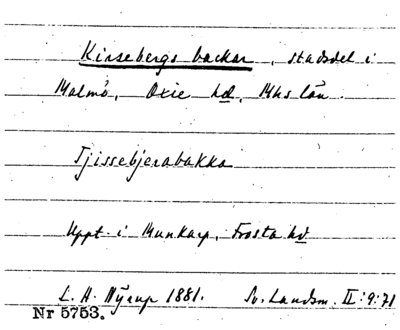 Kirsebergs backar, stadsdel i
Malmö, Oxie hd, Mhs län.
Tjissebjerabakka
Uppt. i Munkarp, Frosta hd
L. H. Nyrup 1881. Sv. Landsm. II:9:71
Nr 5753.